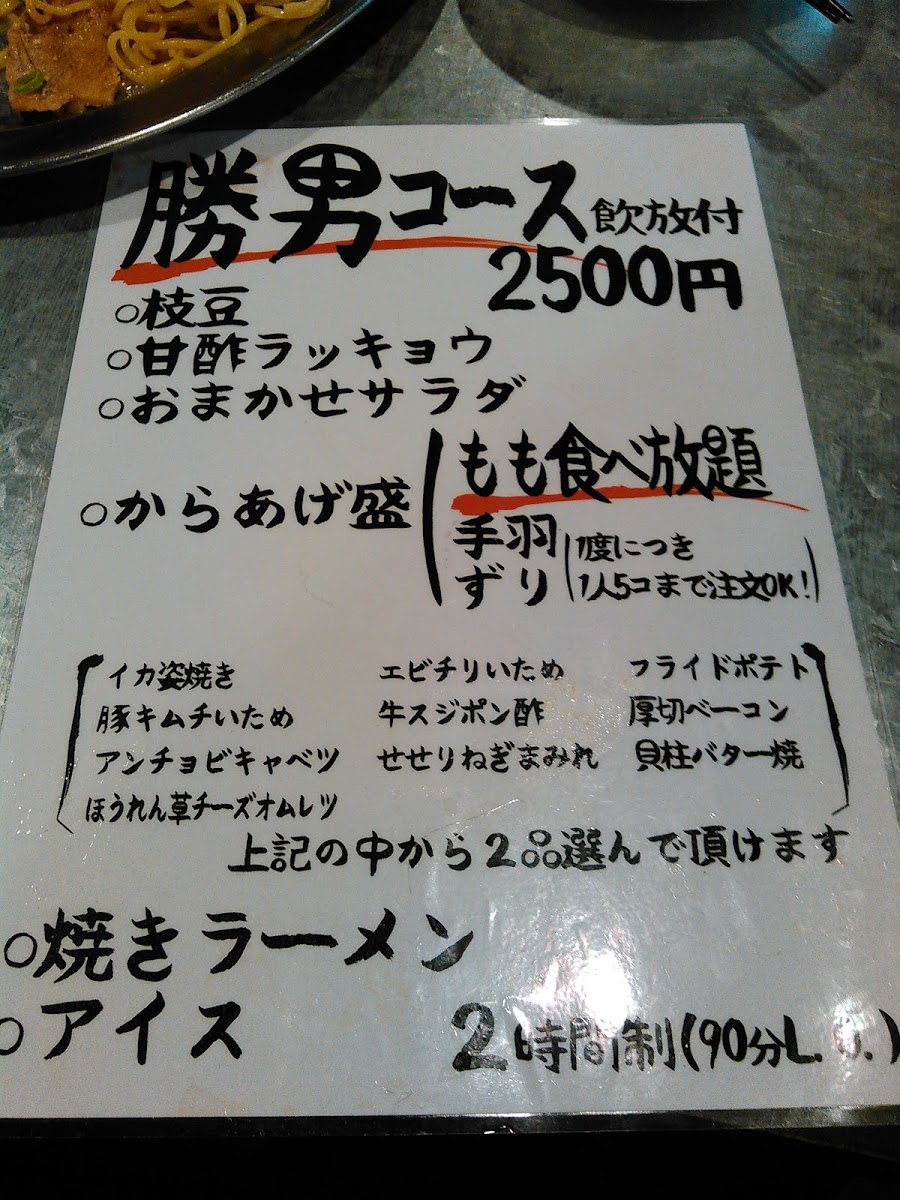 勝男コース 飲放付
2500円
○枝豆
○甘酢ラッキョウ
○おまかせサラダ
○からあげ盛
もも食べ放題
手羽
ずり
1度につき
1人5コまで注文OK!
イカ姿焼き エビチリいため フライドポテト
豚キムチいため 牛スジポン酢 厚切ベーコン
アンチョビキャベツ せせりねぎまみれ 貝柱バター焼
ほうれん草チーズオムレツ
上記の中から2品選んで頂けます
○焼きラーメン
○アイス
2時間制(90分L.O.)